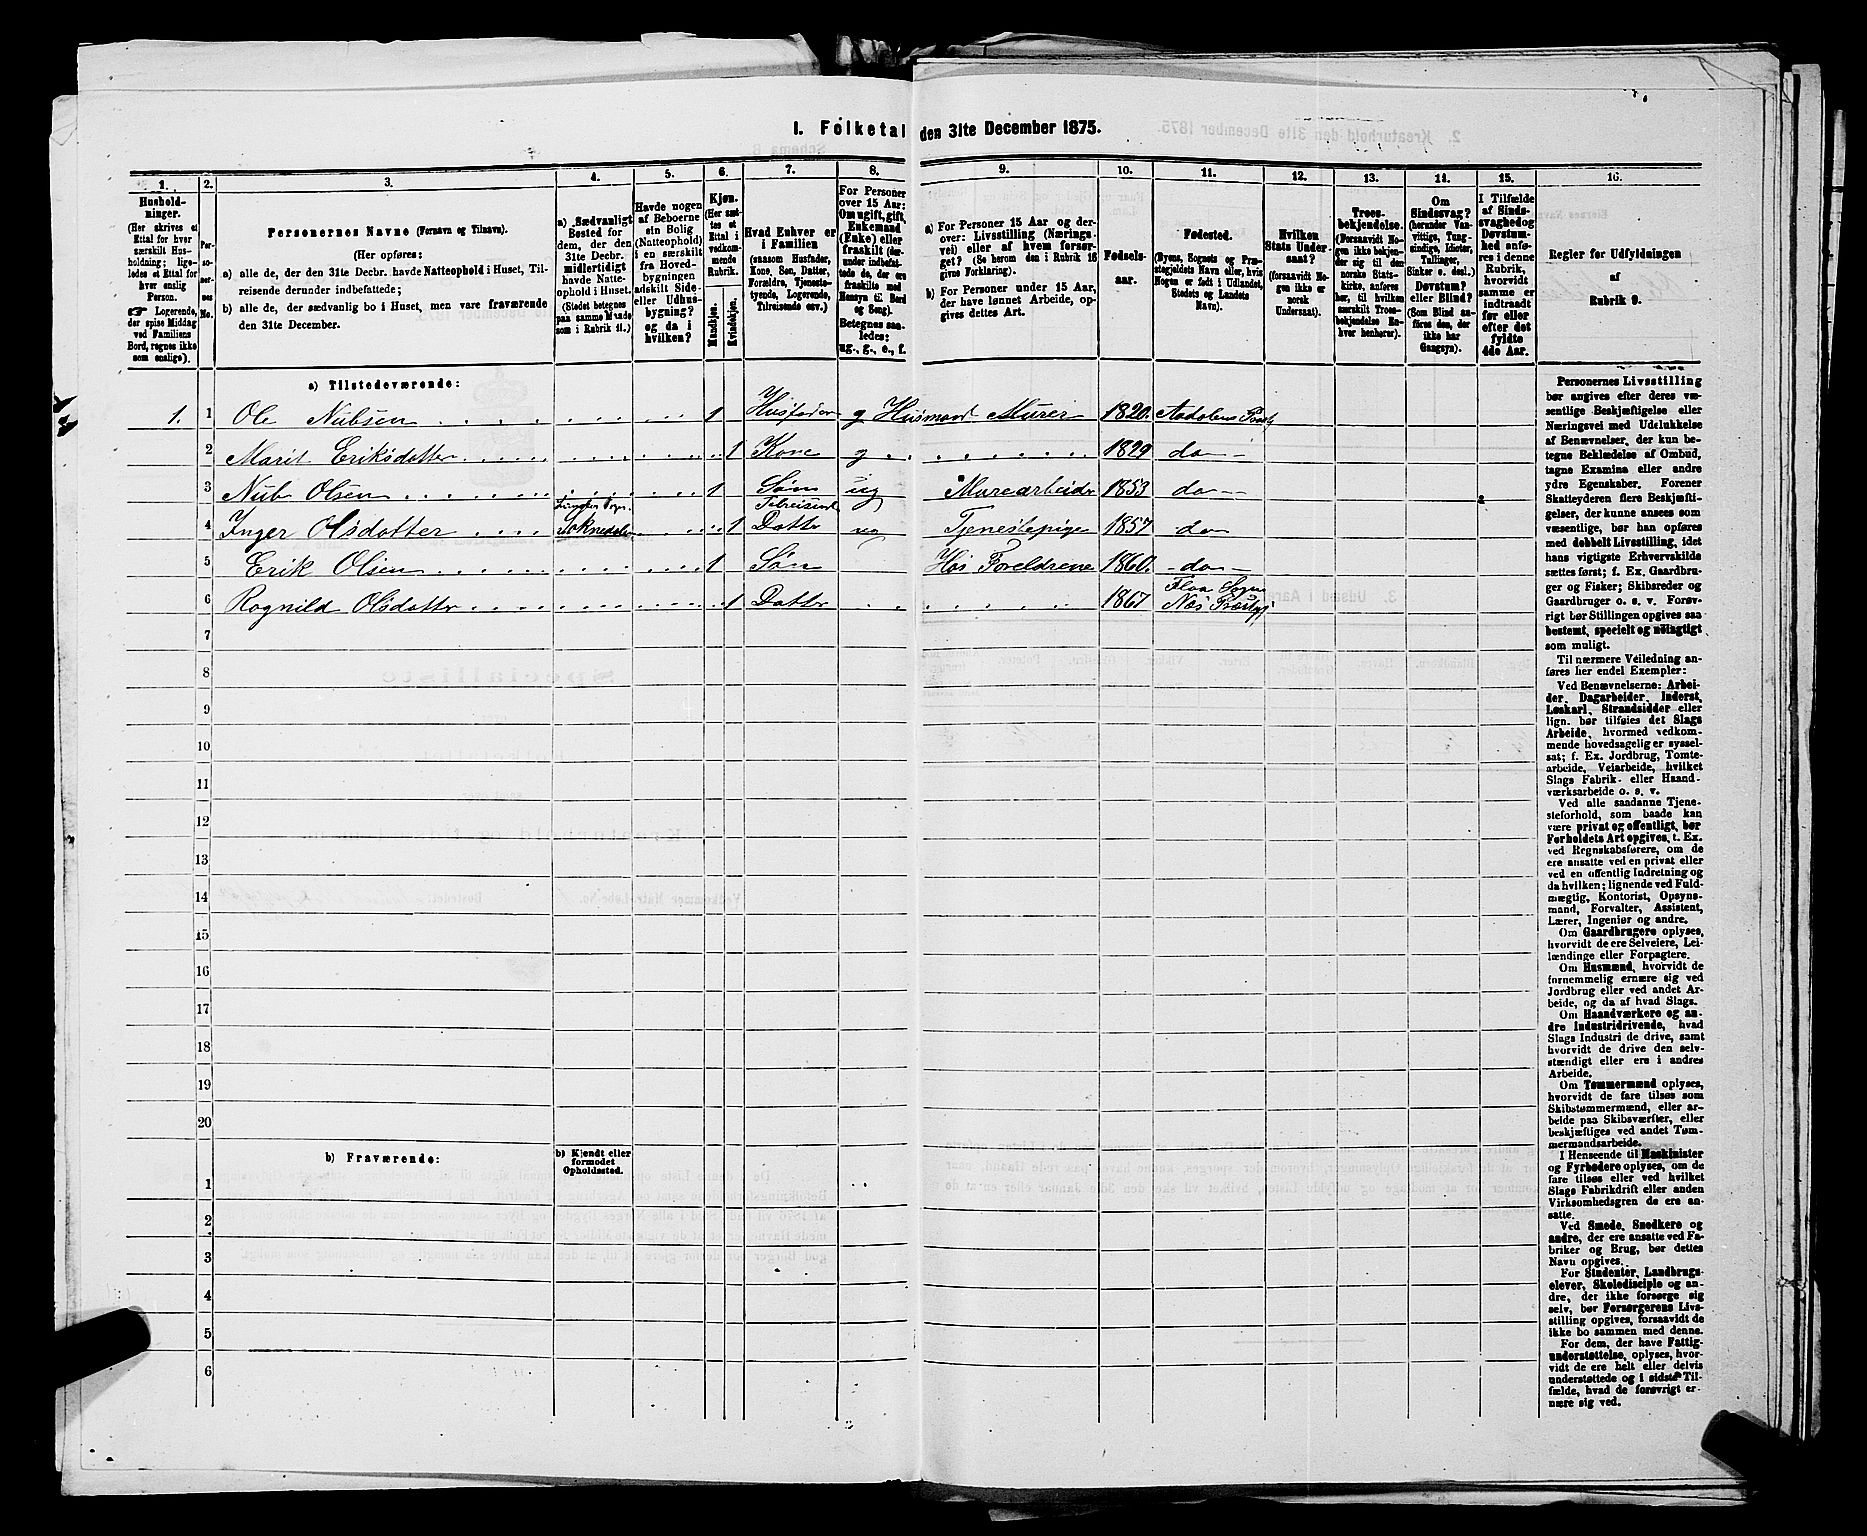 1. Folketal den 31te December 1875.
1.
Husholdninger.
(Her skrives et Ettal for hver særskilt Husholdning; ligeledes et Ettal for hver enslig Person.
☞ Logerende, der spise Middag ved Familiens Bord, regnes ikke som enslige).
2.
Personernes No.
3.
Personernes Navne (Fornavn og Tilnavn).
(Her opføres:
a) alle de, der den 31te Decbr. havde Natteophold i Huset, Tilreisende derunder indbefattede;
b) alle de, der sædvanlig bo i Huset, men vare fraværende den 31te December.
4.
a) Sædvanligt Bosted for dem, der den 31te Decbr. midlertidigt havde Natteophold i Huset.
(Stedet betegnes paa samme Maade som i Rubrik 11.)
5.
Havde nogen af Beboerne sin Bolig (Natteophold) i en særskilt fra Hovedbygningen adskilt Side- eller Udhusbygning? og da i hvilken?
6.
Kjøn.
(Her sættes et Ettal i vedkommende Rubrik.
Mandkjøn.
Kvindekjøn.
7.
Hvad Enhver er i Familien
(saasom Husfader, Kone, Søn, Datter, Forældre, Tjenestetyende, Logerende, Tilreisende osv.)
8.
For Personer over 15 Aar: Om ugift, gift, Enkemand (Enke) eller fraskilt (derunder indbefattede de, der ere fraskilte med Hensyn til Bord og Seng).
Betegnes saaledes: ug., g., e., f.
9.
a) For Personer 15 Aar og derover: Livsstilling (Næringsvei) eller af hvem forsørget? (Se herom den i Rubrik 16 givne Forklaring).
b) For Personer under 15 Aar, der have lønnet Arbeide, opgives dettes Art.
10.
Fødselsaar.
11.
Fødested.
(Byens, Sognets og Præstegjeldets Navn eller, hvis Nogen er født i Udlandet, Stedets og Landets Navn).
12.
Hvilken Stats Undersaat?
(forsaavidt Nogen ikke er norsk Undersaat).
13.
Troesbekjendelse.
(Forsaavidt Nogen ikke bekjender sig til den norske Statskirke, anføres her, til hvilken særskilt Troesbekjendelse Enhver henhører).
14.
Om Sindssvag?
(herunder Vanvittige, Tungsindige, Idioter, Tullinger, Sinker o. desl.)
Døvstum? eller Blind?
(Som Blind anføres den, der ikke har Gangsyn).
15.
I Tilfælde af Sindssvaghed og Døvstumhed anføres i denne Rubrik, hvorvidt samme er indtraadt før eller efter det fyldte 4de Aar.
16.
Regler for Udfyldningen af Rubrik 9.
a) Tilstedeværende:
1. 1 Ole Nubsen 1 Husfader g Husmand Murer 1820. Aadalens
2 Marit Eriksdatter 1 Kone g 1829 do
3 Nub Olsen 1 Søn ug Murearbeider 1853 do
4 Inger Olsdatter Soknedalen 1 Tilreisende Datter ug Tjenestepige 1857 do
5 Erik Olsen 1 Søn Hos Foreldrene 1860. do
6 Rognild Olsdatter 1 Datter 1867 Flaa Sogn Næs
7
8
9
10
11
12
13
14
15
16
17
18
19
20
b) Fraværende:
b) Kjendt eller formodet Opholdssted.
1
2
3
4
5
6
Personernes Livsstilling
bør angives efter deres væ-
sentlige Beskjæftigelse eller
Næringsvei med Udelukkelse
af Benævnelser, der kun be-
tegne Beklædelse af Ombud,
tagne Examina eller andre
ydre Egenskaber. Forener
Skatteyderen flere Beskjæfti-
gelser, der kunne ansees som
væsentlige, bør han opføres
med dobbelt Livsstilling, idet
hans vigtigste Erhvervskilde
sættes først; f. Ex. Gaardbru-
ger og Fisker; Skibsreder og
Gaardbruger o. s. v. Forøv-
rigt bør Stillingen opgives saa
bestemt, specielt og nøiagtigt
som muligt.
Til nærmere Veiledning an-
føres her endel Exempler:
Ved Benævnelserne: Arbei-
der, Dagarbeider, Inderst,
Løskarl, Strandsidder eller
lign. bør tilføies det Slags
Arbeide, hvormed vedkom-
mende hovedsagelig er syssel-
sat; f. Ex. Jordbrug, Tomte-
arbeide, Veiarbeide, hvilket
Slags Fabrik- eller Haand-
værksarbeide o. s. v.
Ved alle saadanne Tjene-
steforhold, som baade kan
være privat og offentligt, bør
Forholdets Art opgives, t. Ex.
ved Regnskabsførere, om de
ere ansatte ved en privat eller
ved en offentlig Indretning og
da hvilken; lignende ved Fuld-
mægtig, Kontorist, Opsyns-
mand, Forvalter, Assistent,
Lærer, Ingeniør og andre.
Om Gaardbrugere oplyses,
hvorvidt de ere Selveiere, Lei-
lændinge eller Forpagtere.
Om Husmænd, hvorvidt de
fornemmelig ernære sig ved
Jordbrug eller ved andet Ar-
beide, og da af hvad Slags.
Om Haandværkere og an-
dre Industridrivende, hvad
Slags Industri de drive, samt
hvorvidt de drive den selv-
stændigt eller ere i andres
Arbeide.
Om Tømmermænd oplyses,
hvorvidt de fare tilsøs som
Skibstømmermænd, eller ar-
beide paa Skibsværfter, eller
beskjæftiges ved andet Tøm-
mermandsarbeide.
I Henseende til Maskinister
og Fyrbødere oplyses, om de
fare tilsøs eller ved hvilket
Slags Fabrikdrift eller anden
Virksomhedsgren de ere an-
satte.
Ved Smede, Snedkere og
andre, der ere ansatte ved Fa-
briker og Brug, bør dettes
Navn opgives.
For Studenter, Landbrugs-
elever, Skoledisciple og an-
dre, der ikke forsørge sig
selv, bør Forsørgerens Livs-
stilling opgives, forsaavidt de
ikke bo sammen med denne.
For dem, der have Fattig-
understøttelse, oplyses, hvor-
vidt de ere helt eller delvis
understøttede og i sidste Til-
fælde, hvad de forøvrigt er-
nære sig ved.